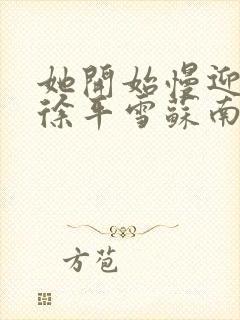 她開始慢迎
徐平雪蘇南
方苞